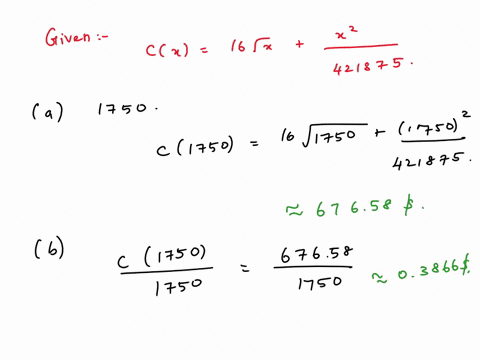 Given :- C(x) = 16√x + x² / 421875.
(a) 1750.
C(1750) = 16√1750 + (1750)² / 421875.
≈ 676.58 $.
(b) C(1750) / 1750 = 676.58 / 1750 ≈ 0.3866$.